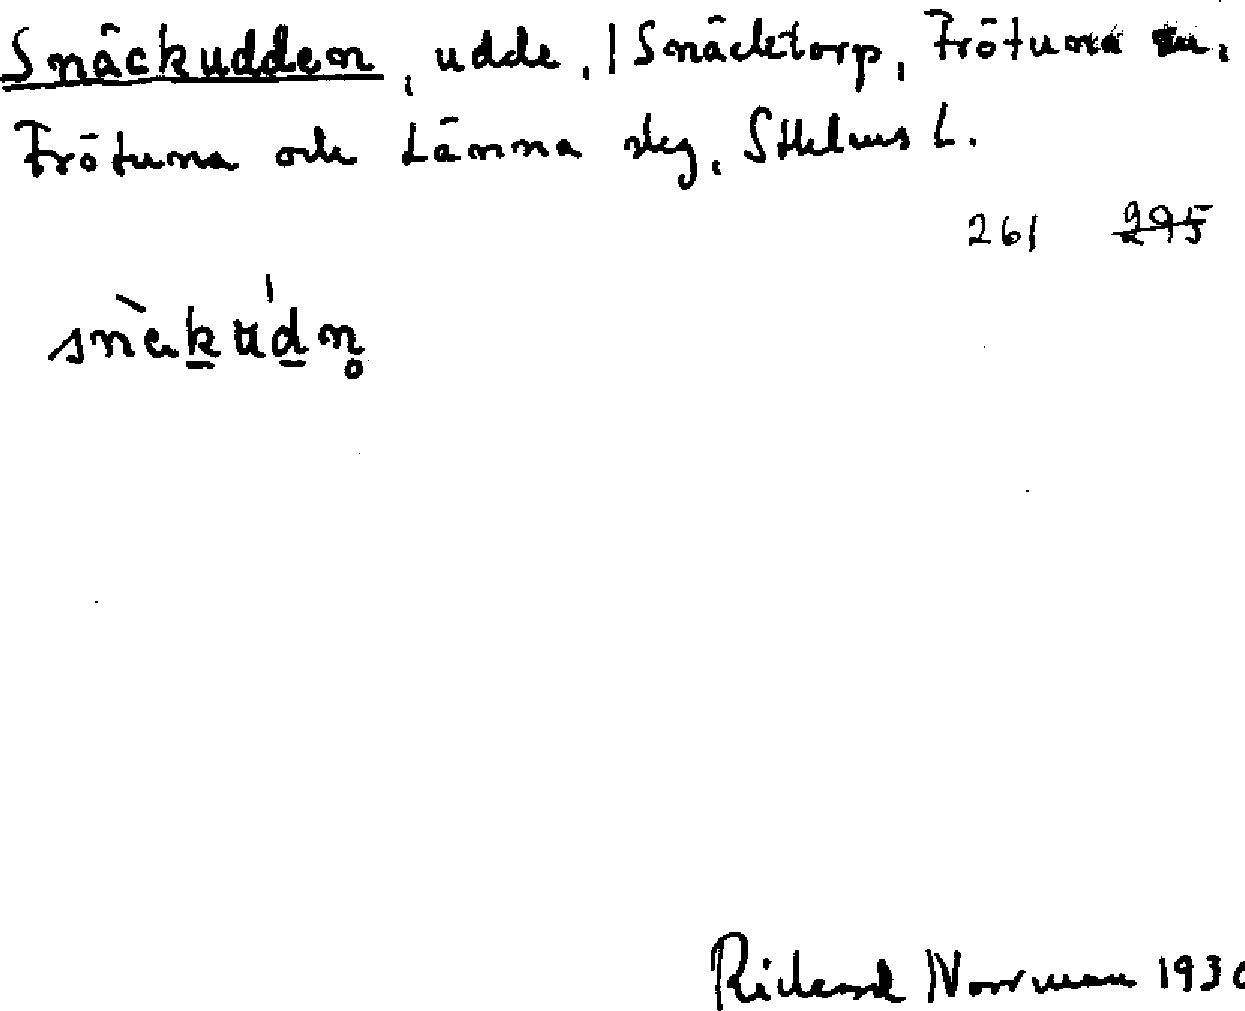 Snäckudden, udde, | Snäcktorp, Frötuna sn,
Frötuna och Länna skg, Sthlms L.
261 295
snèk̲ud̲n̥
Rickard Norrman 193